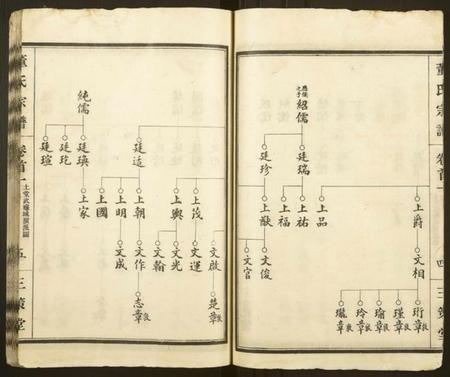 董氏宗譜
卷首一
四
三策堂
應儀之子
紹儒
廷瑞
廷珍
上爵
上品
上祐
上福
上猷
文相
文俊
文官
珩章
瑾章
瑜章
玲章
瓏章
純儒
廷适
廷瑛
廷玭
廷瑄
上茂
上興
上朝
上明
上國
上家
文啟
文運
文光
文翰
文作
文成
楚章
志章
董氏宗譜
卷首一
伍
三策堂